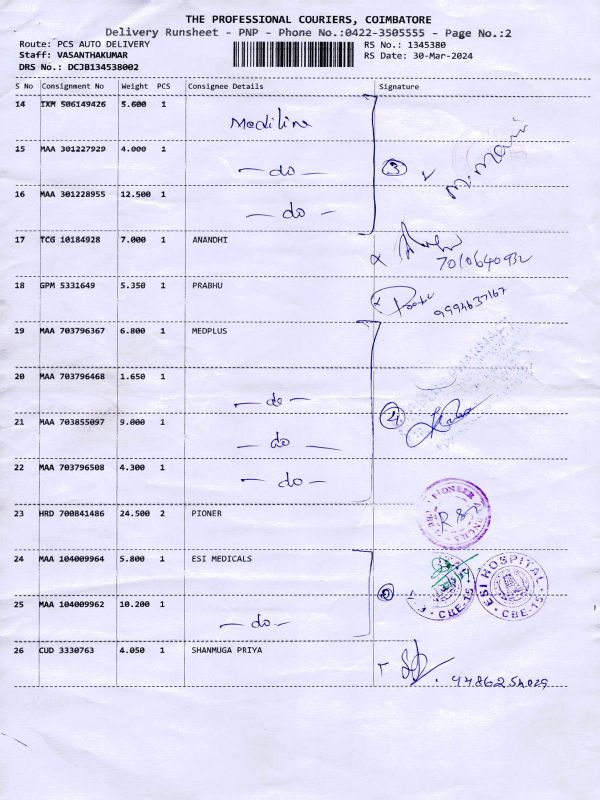 THE PROFESSIONAL COURIERS, COIMBATORE
Delivery Runsheet - PNP - Phone No.:0422-3505555 - Page No.:2
Route: PCS AUTO DELIVERY RS No.: 1345380
Staff: VASANTHAKUMAR RS Date: 30-Mar-2024
DRS No.: DCJB134538002
S No Consignment No Weight PCS Consignee Details Signature
14 IXM 506149426 5.600 1
Mediline
15 MAA 301227929 4.000 1
- do - 3 M. Mani
16 MAA 301228955 12.500 1
- do -
17 TCG 10184928 7.000 1 ANANDHI
18 GPM 5331649 5.350 1 PRABHU
9994637167
19 MAA 703796367 6.800 1 MEDPLUS
20 MAA 703796468 1.650 1
- do -
21 MAA 703855097 9.000 1 4
- do -
22 MAA 703796508 4.300 1
- do -
23 HRD 700841486 24.500 2 PIONER
PIONEER
24 MAA 104009964 5.800 1 ESI MEDICALS
ESI HOSPITAL CBE-15
CBE-15
25 MAA 104009962 10.200 1
- do -
26 CUD 3330763 4.050 1 SHANMUGA PRIYA